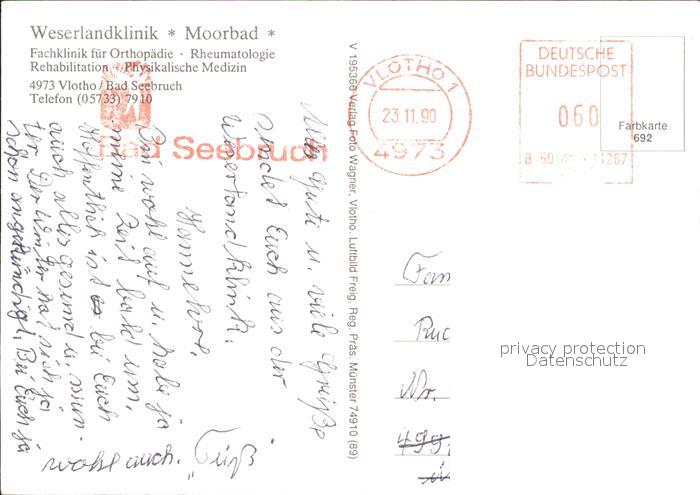 Weserlandklinik * Moorbad *
Fachklinik für Orthopädie · Rheumatologie
Rehabilitation · Physikalische Medizin
4973 Vlotho / Bad Seebruch
Telefon (05733) 7910
Bad Seebruch
VLOTHO 1
23.11.90
4973
DEUTSCHE
BUNDESPOST
060
Farbkarte
692
V 195366 Verlag Foto Wagner, Vlotho. Luftbild Freig. Reg. Präs. Münster 74910 (89)
Alles Gute u. viele Grüße
sendet Euch aus der
Weserlandklinik.
Hannelore.
Bin wohl auf u. habe ja
meine Zeit bald um.
Hoffentlich ist es bei Euch
auch alles gesund u. mun-
ter. Der Winter hat sich ja
schon angekündigt. Bei Euch ja
wohl auch. "Tüß"
Fam
Nr.
privacy protection
Datenschutz